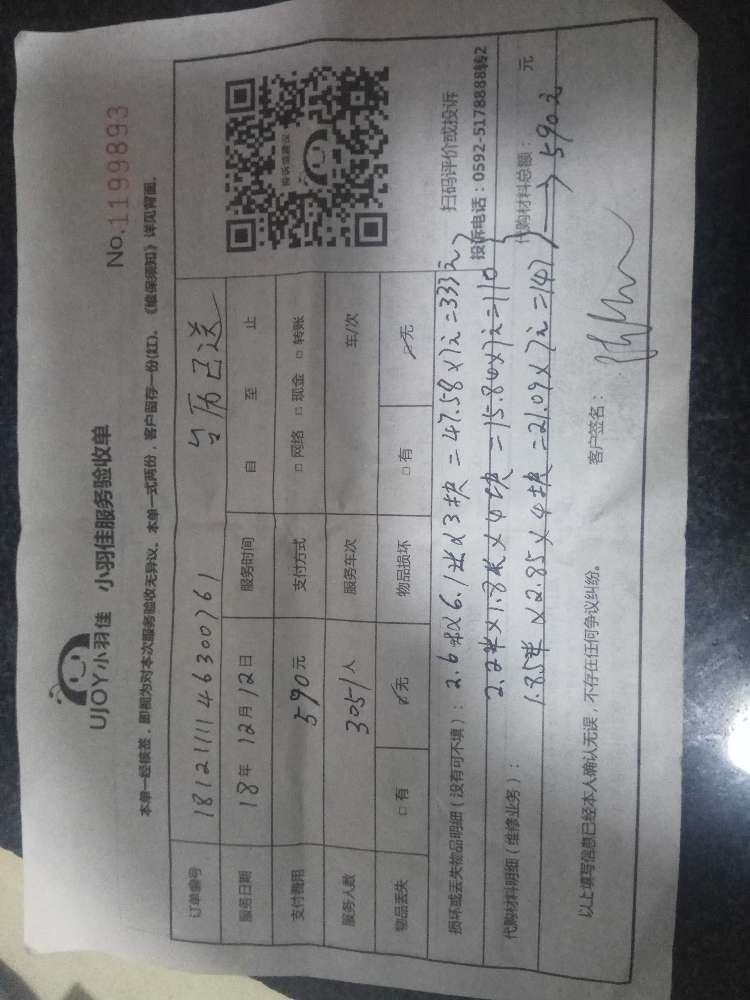 UJOY小羽佳 小羽佳服务验收单
No.1199893
本单一经核签，即视为对本次服务验收无异议。本单一式两份，客户留存一份(红)。《维保须知》详见背面。
订单编号 1812111146300761 台历已送
服务日期 18年12月12日 服务时间 自 至 止
支付费用 590元 支付方式 □网络 □现金 □转账
服务人数 3051人 服务车次 车/次
物品丢失 □有 ☑无 物品损坏 □有 ☑无
投诉或建议
扫码评价或投诉
投诉电话：0592-5178888转2
损坏或丢失物品明细（没有可不填）：2.6米×6.1米×3块=47.58×7元=333元
代购材料明细（维修业务）： 代购材料总额： 元
2.2米×1.8米×4块=15.84×7元=110
1.85米×2.85×4块=21.09×7元=147
→590元
以上填写信息已经本人确认无误，不存在任何争议纠纷。 客户签名：